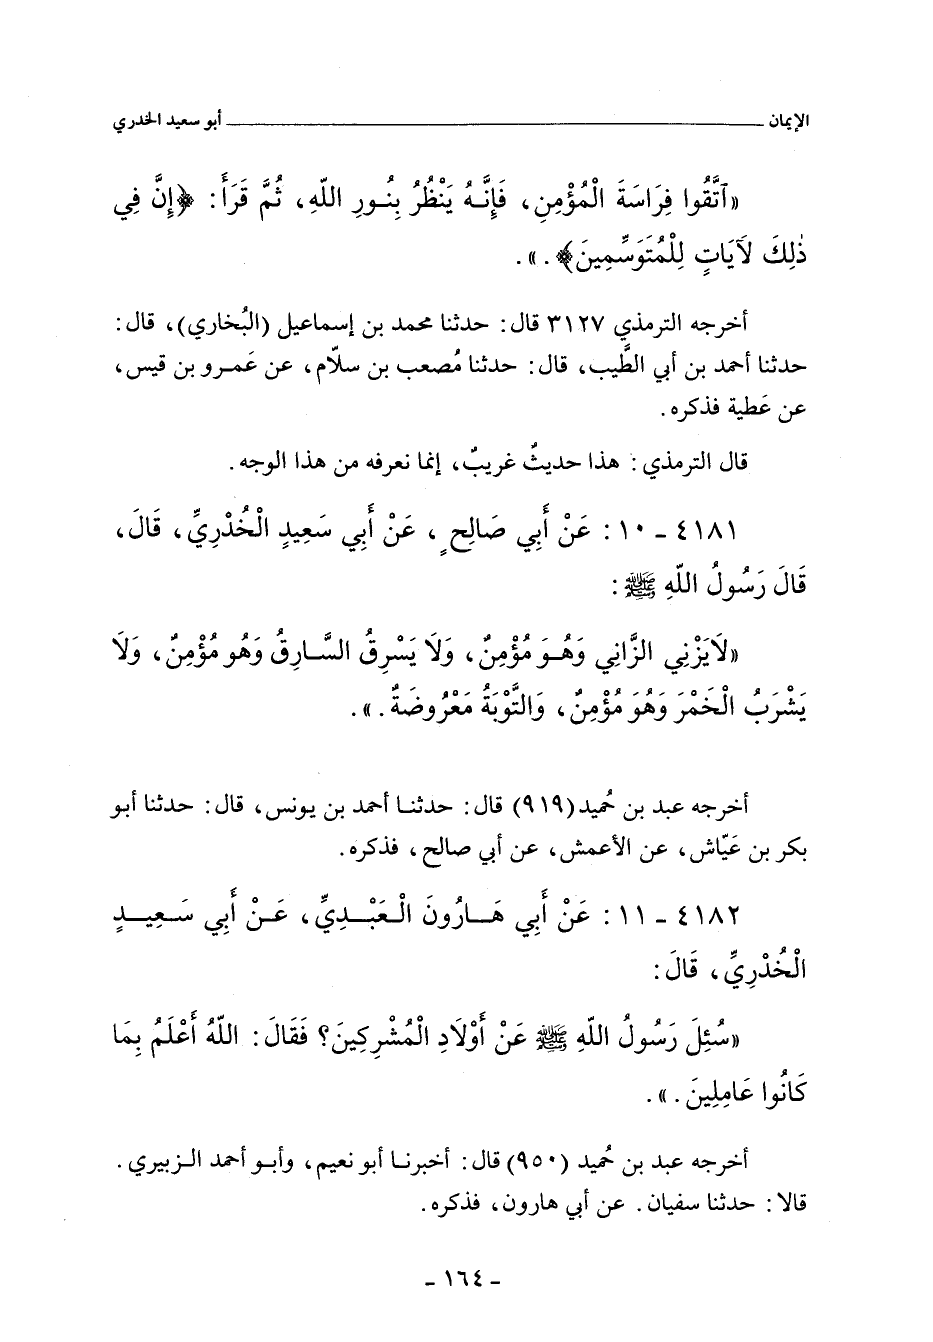 الإيمان ــــــــــــــــــــ أبو سعيد الخدري
«ٱتَّقُوا فِرَاسَةَ الْمُؤْمِنِ، فَإِنَّـهُ يَنْظُرُ بِنُـورِ اللّهِ، ثُمَّ قَرَأَ: ﴿إِنَّ فِي
ذٰلِكَ لَآيَاتٍ لِلْمُتَوَسِّمِينَ﴾.».
أخرجه الترمذي ٣١٢٧ قال: حدثنا محمد بن إسماعيل (البُخاري)، قال:
حدثنا أحمد بن أبي الطَّيب، قال: حدثنا مُصعب بن سلاّم، عن عَمـرو بن قيس،
عن عَطية فذكره.
قال الترمذي: هذا حديثٌ غريبٌ، إنما نعرفه من هذا الوجه.
٤١٨١ - ١٠: عَنْ أَبِي صَالِحٍ، عَنْ أَبِي سَعِيدٍ الْخُدْرِيِّ، قَالَ،
قَالَ رَسُولُ اللّهِ ﷺ:
«لاَيَزْنِي الزَّانِي وَهُـوَ مُؤْمِنٌ، وَلاَ يَسْرِقُ السَّـارِقُ وَهُو مُؤْمِنٌ، وَلاَ
يَشْرَبُ الْخَمْرَ وَهُوَ مُؤْمِنٌ، وَالتَّوْبَةُ مَعْرُوضَةٌ.».
أخرجه عبد بن حُميد (٩١٩) قال: حدثنـا أحمد بن يونس، قال: حدثنا أبو
بكر بن عَيّاش، عن الأعمش، عن أبي صالح، فذكره.
٤١٨٢ - ١١: عَنْ أَبِي هَـارُونَ الْعَبْـدِيِّ، عَـنْ أَبِي سَـعِيـدٍ
الْخُدْرِيِّ، قَالَ:
«سُئِلَ رَسُولُ اللّهِ ﷺ عَنْ أَوْلَادِ الْمُشْرِكِينَ؟ فَقَالَ: اللّهُ أَعْلَمُ بِمَا
كَانُوا عَامِلِينَ.».
أخرجه عبد بن حُميد (٩٥٠) قال: أخبرنـا أبو نعيم، وأبـو أحمد الـزبيري.
قالا: حدثنا سفيان. عن أبي هارون، فذكره.
- ١٦٤ -